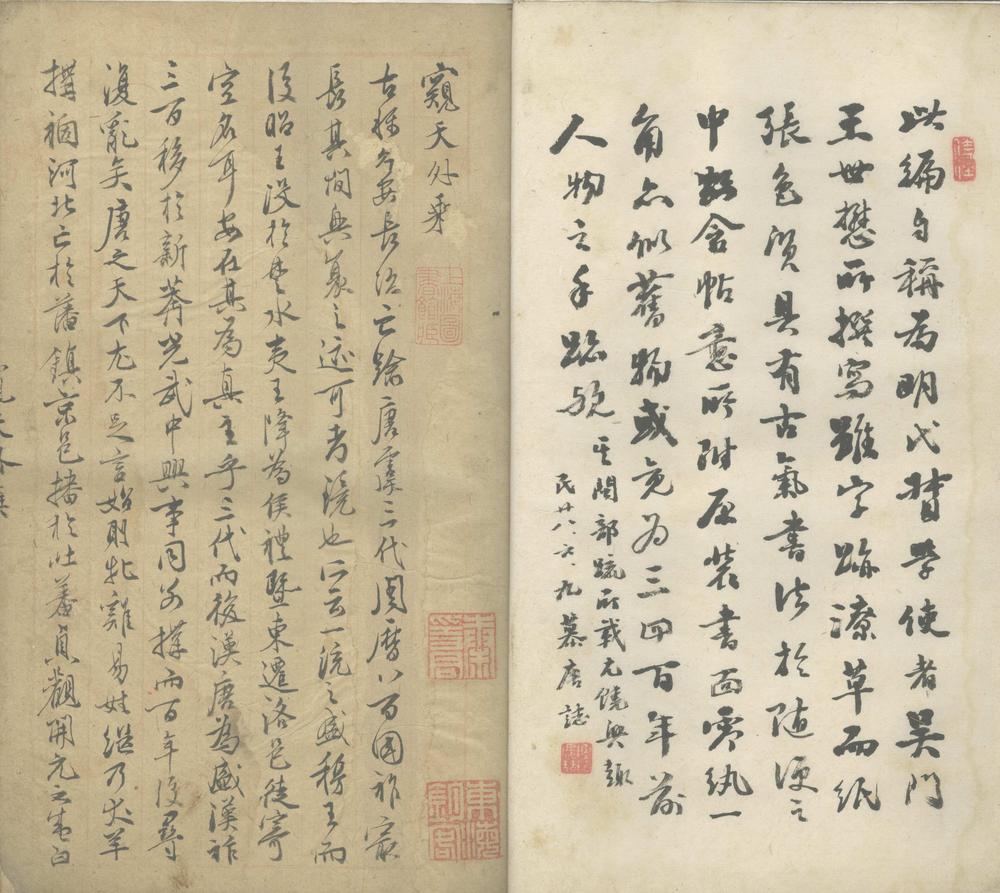 此編自稱為明代督學使者吳門
王世懋所撰寫雖字跡潦草而紙
張色質具有古氣書法於隨便之
中頗含帖意所附原裝書面零紈一
角亦似舊物或竟為三四百年前
人物之手蹟歟
其閩部疏所載尤饒興趣
民廿八、六、九 慕唐誌
窺天外乘
古稱久安長治亡踰唐虞三代周曆八百國祚最
長其間興衰之迹可考鏡也所云一統之盛穆王而
後昭王沒於楚水夷王降為侯禮暨東遷洛邑徒寄
空名耳安在其為真主乎三代而後漢唐為盛漢祚
三百移於新莽光武中興事同另構而百年後尋
復亂矣唐之天下尤不足言始則牝雞易姓繼乃犬羊
搆禍河北亡於藩鎮京邑播於吐蕃貞觀開元之盛曰